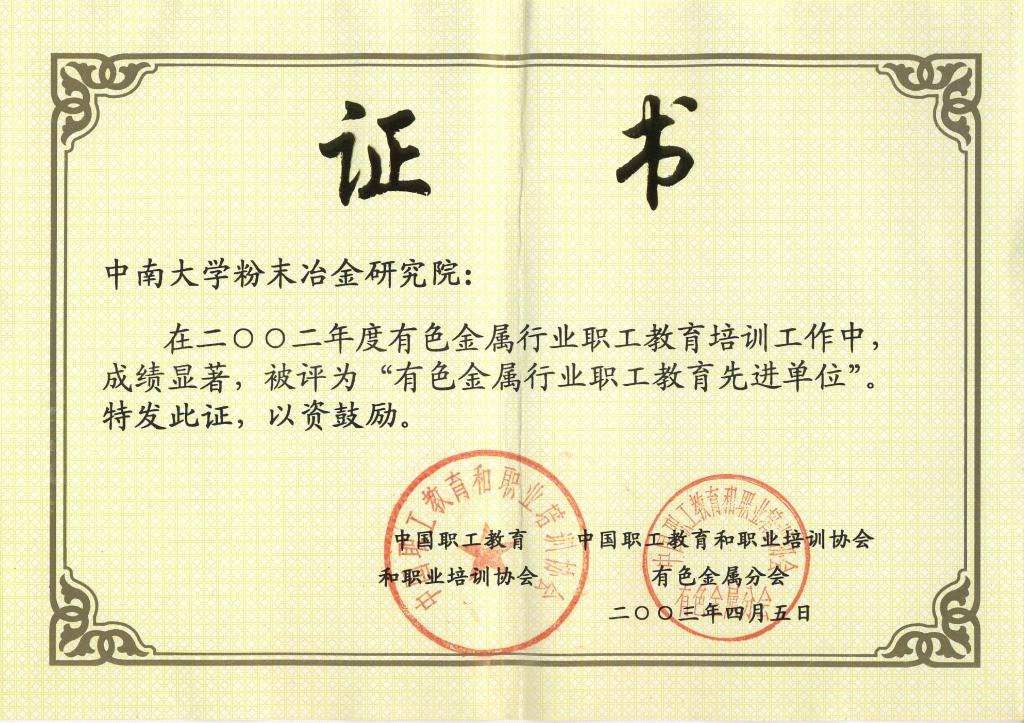 证 书
中南大学粉末冶金研究院：
在二〇〇二年度有色金属行业职工教育培训工作中，
成绩显著，被评为“有色金属行业职工教育先进单位”。
特发此证，以资鼓励。
中国职工教育和职业培训协会
中国职工教育和职业培训协会
有色金属分会
中国职工教育
和职业培训协会
中国职工教育和职业培训协会
有色金属分会
二〇〇三年四月五日